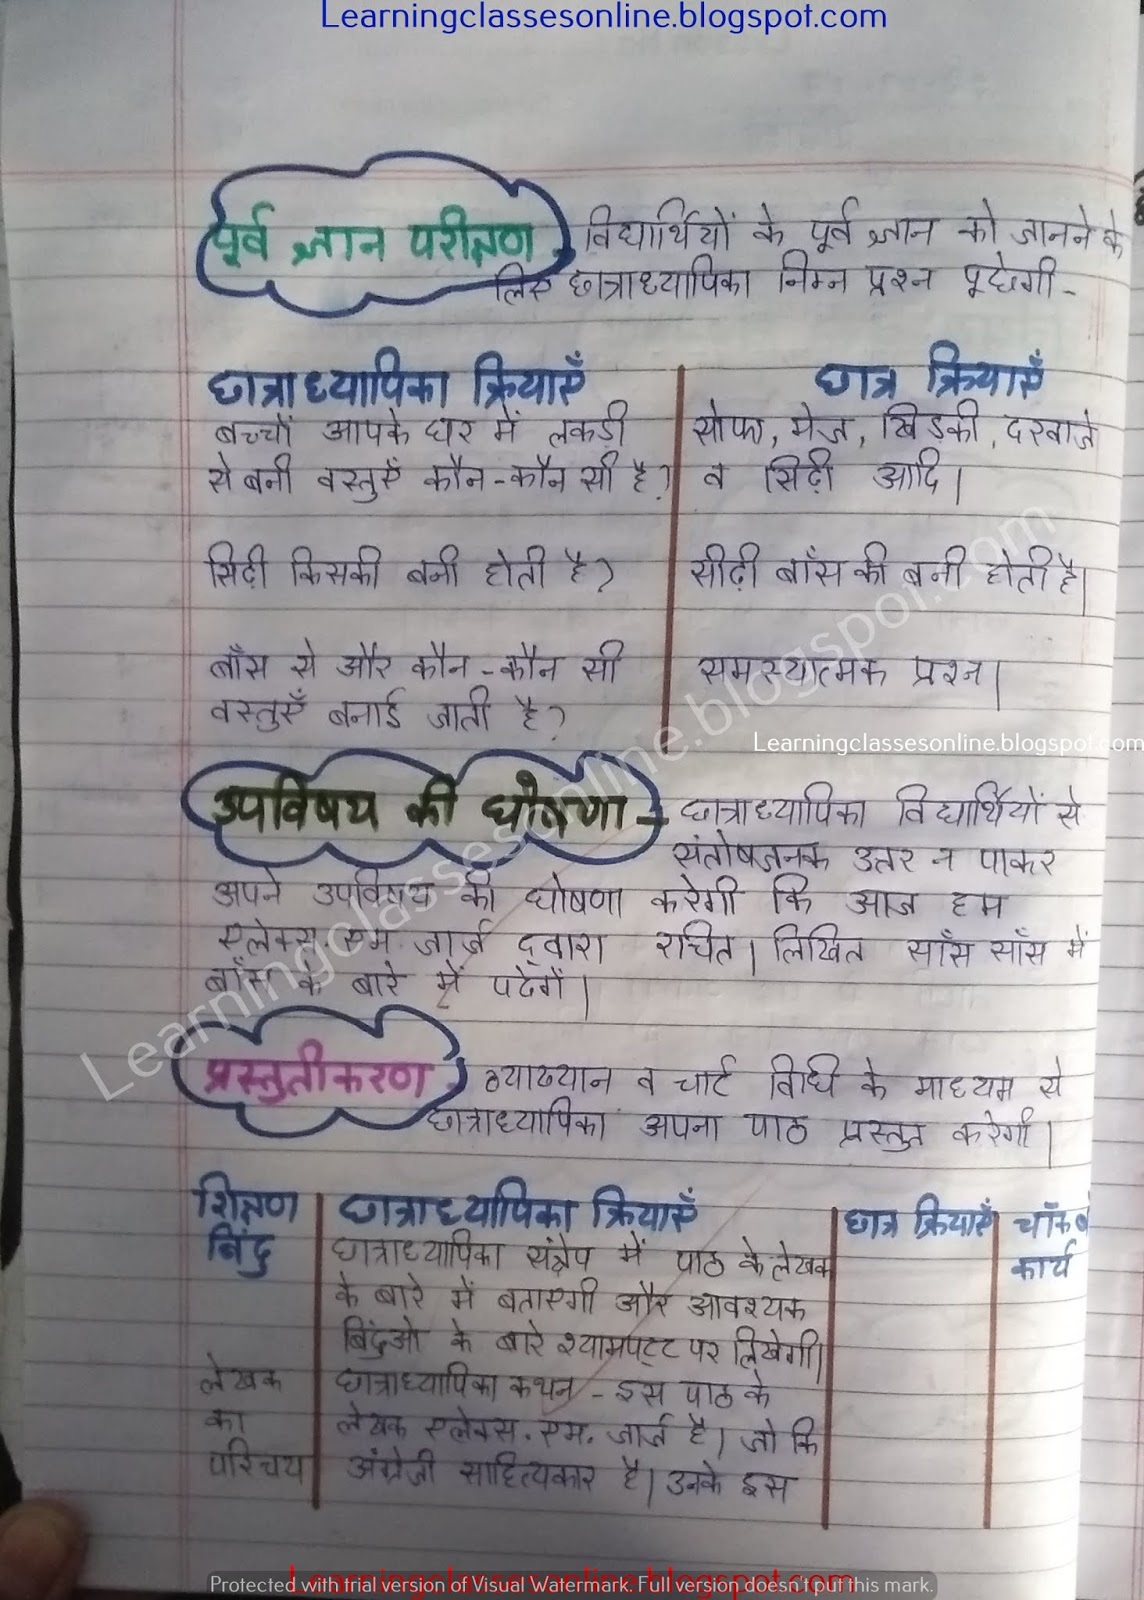 Learningclassesonline.blogspot.com
पूर्व ज्ञान परीक्षण - विद्यार्थियों के पूर्व ज्ञान को जानने के
लिए छात्राध्यापिका निम्न प्रश्न पूछेगी -
छात्राध्यापिका क्रियाएँ
बच्चों आपके घर में लकड़ी
से बनी वस्तुएँ कौन-कौन सी है?
सिढ़ी किसकी बनी होती है?
बाँस से और कौन-कौन सी
वस्तुएँ बनाई जाती है?
छात्र क्रियाएँ
सोफा, मेज, खिडकी, दरवाजे
व सिढ़ी आदि।
सीढ़ी बाँस की बनी होती है।
समस्यात्मक प्रश्न।
Learningclassesonline.blogspot.com
Learningclassesonline.blogspot.com
उपविषय की घोषणा - छात्राध्यापिका विद्यार्थियों से
संतोषजनक उत्तर न पाकर
अपने उपविषय की घोषणा करेगी कि आज हम
एलेक्स. एम. जार्ज द्वारा रचित। लिखित साँस साँस में
बाँस के बारे में पढेगें।
प्रस्तुतीकरण - व्याख्यान व चार्ट विधि के माध्यम से
छात्राध्यापिका अपना पाठ प्रस्तुत करेगी।
शिक्षण
बिंदु
लेखक
का
परिचय
छात्राध्यापिका क्रियाएँ
छात्राध्यापिका संक्षेप में पाठ के लेखक
के बारे में बताएगी और आवश्यक
बिंदुओ के बारे श्यामपट्ट पर लिखेगी।
छात्राध्यापिका कथन - इस पाठ के
लेखक एलेक्स. एम. जार्ज है। जो कि
अंग्रेजी साहित्यकार है। उनके इस
छात्र क्रियाएँ
चॉक
कार्य
Learningclassesonline.blogspot.com
Protected with trial version of Visual Watermark. Full version doesn't put this mark.